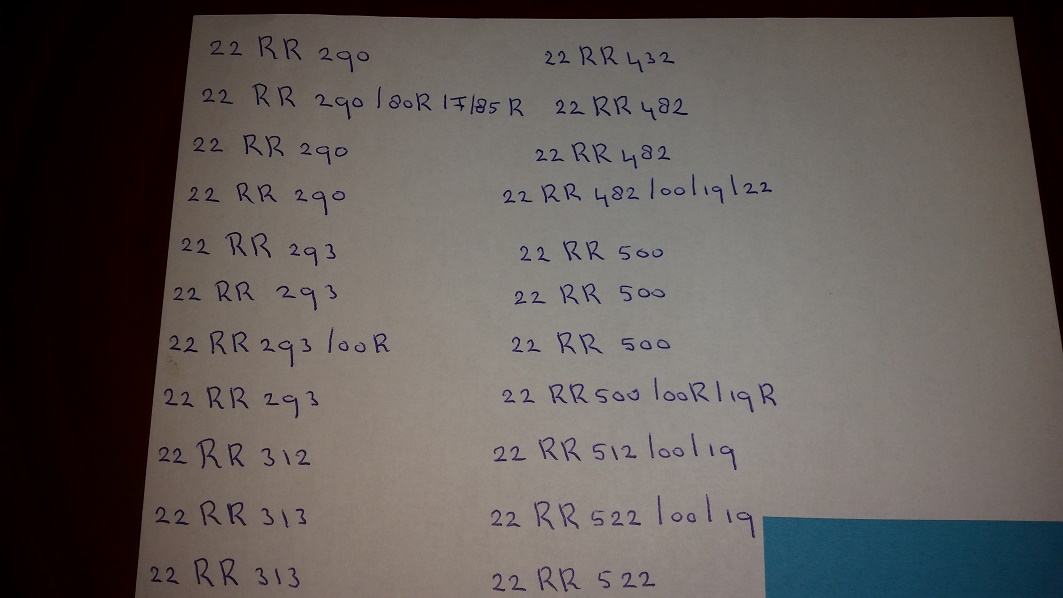 22 RR 290
22 RR 290/80R 17/85 R
22 RR 290
22 RR 290
22 RR 293
22 RR 293
22 RR 293/00R
22 RR 293
22 RR 312
22 RR 313
22 RR 313
22 RR 432
22 RR 482
22 RR 482
22 RR 482/00/19/22
22 RR 500
22 RR 500
22 RR 500
22 RR 500/00R/19R
22 RR 512/00/19
22 RR 522/00/19
22 RR 522